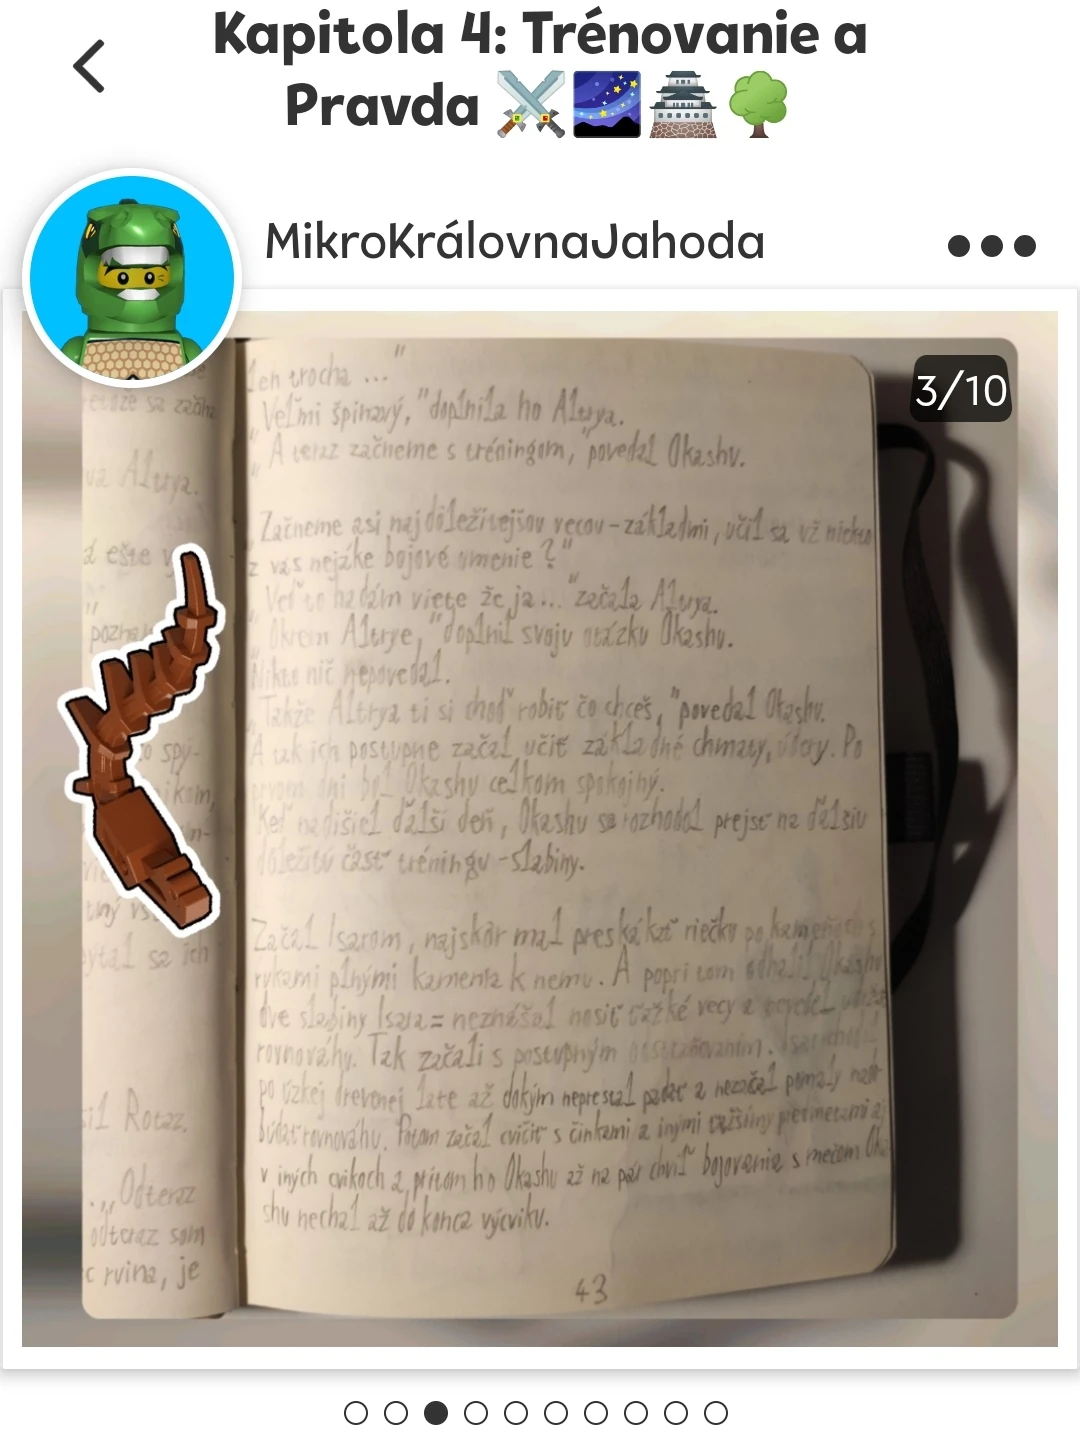 Kapitola 4: Trénovanie a
Pravda
MikroKrálovnaJahoda
3/10
va Altrya.
á ešte
pozna
o spý-
níkom,
ýtal sa ich
sil Rotaz.
„Odteraz
odteraz som
rvina, je
len trocha ..."
„Veľmi špinavý," doplnila ho Altrya.
„A teraz začneme s tréningom," povedal Okashu.
„Začneme asi najdôležitejšou vecou - základmi, učil sa už niekto
z vás nejáke bojové umenie?"
„Veď to hádám viete že ja..." začala Altrya.
„Okrem Altrye," doplnil svoju otázku Okashu.
Nikto nič nepovedal.
„Takže Altrya ti si choď robiť čo chceš," povedal Okashu.
A tak ich postupne začal učiť základné chmaty, údery. Po
prvom dni bol Okashu celkom spokojný.
Keď nadišiel ďalší deň, Okashu sa rozhodol prejsť na ďalsiu
dôležitú časť tréningu - slabiny.
Začal Isarom, najskôr mal preskákať riečku po kameňoch s
rukami plnými kamenia k nemu. A popri tom odhalil Okashu
dve slabiny Isara = neznášal nosiť ťažké vecy a nevedel udržať
rovnováhy. Tak začali s postupným odstraňovaním. Isar chodil
po úzkej drevenej late až dokým neprestal padať a nezačal pomaly nado-
búdať rovnováhu. Potom začal cvičiť s činkami a inými ťažšími predmetami aj
v iných cvikoch a pritom ho Okashu až na pár chvíľ bojovania s mečom Oka-
shu nechal až do konca výcviku.
43